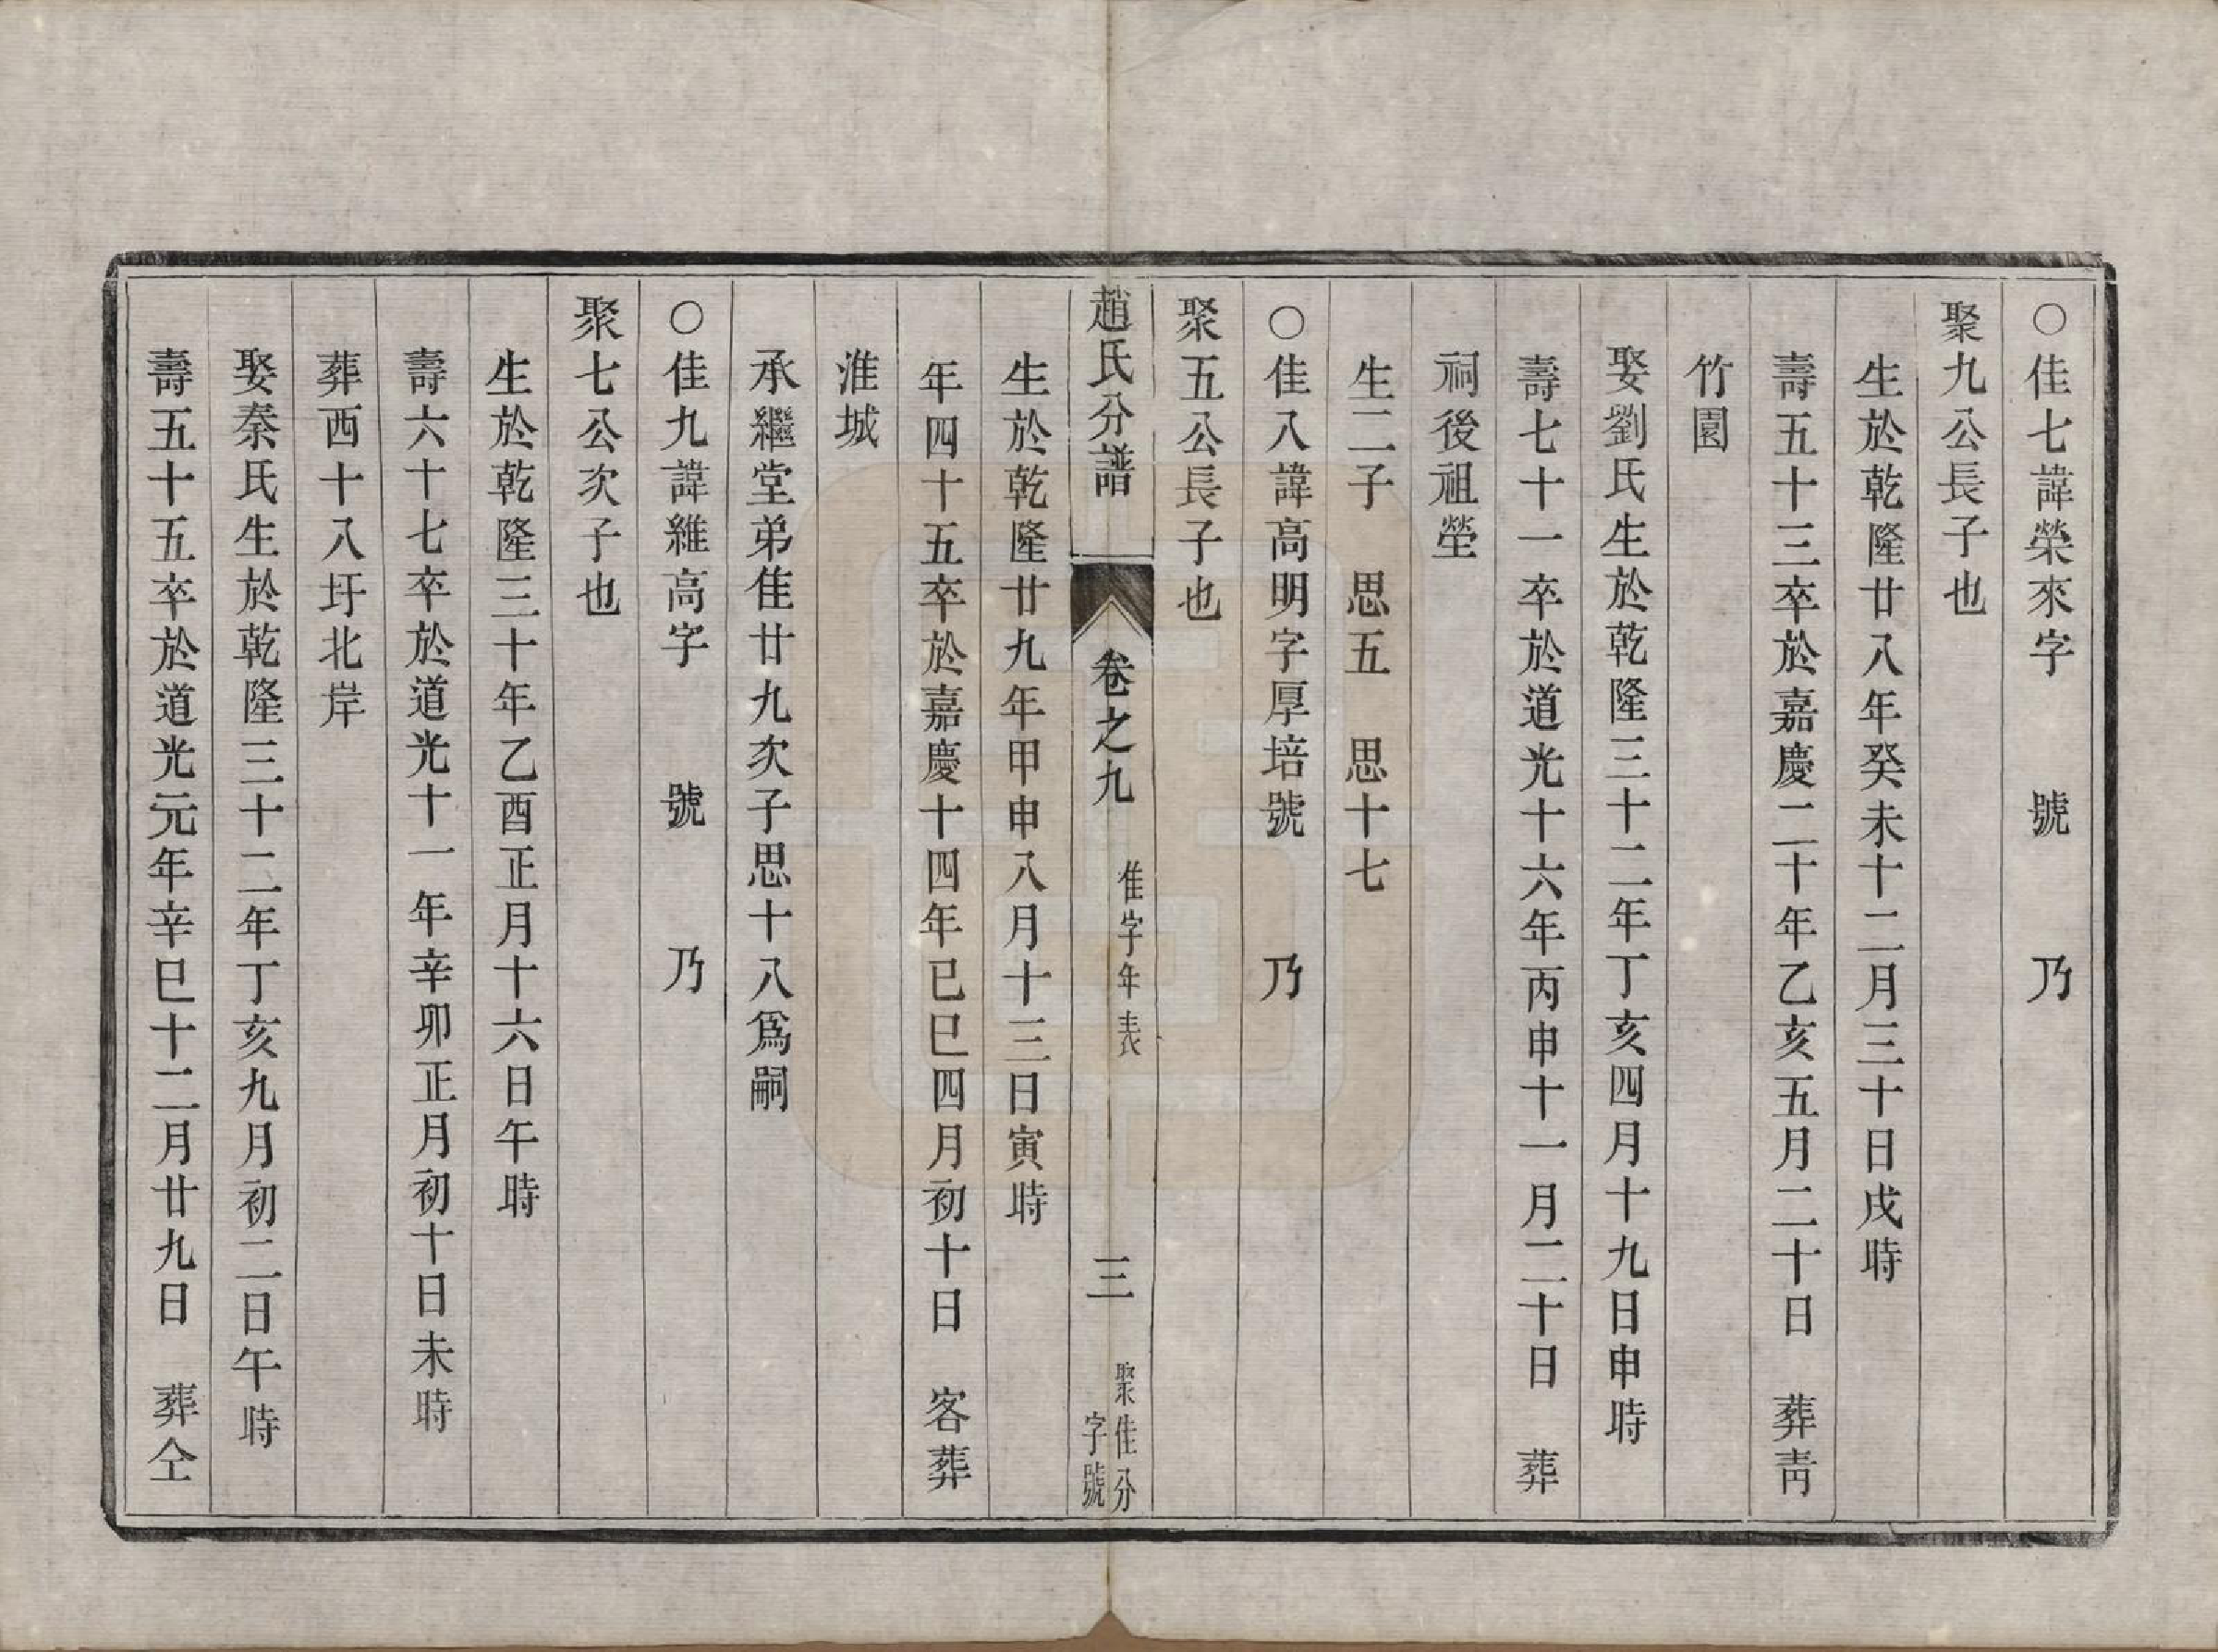 ○佳七諱榮來字　號　乃
聚九公長子也
生於乾隆廿八年癸未十二月三十日戌時
壽五十三卒於嘉慶二十年乙亥五月二十日　葬青
竹園
娶劉氏生於乾隆三十二年丁亥四月十九日申時
壽七十一卒於道光十六年丙申十一月二十日　葬
祠後祖塋
生二子　思五　思十七
○佳八諱高明字厚培號　乃
聚五公長子也
趙氏分譜　卷之九　佳字年表　三　聚佳分字號
生於乾隆廿九年甲申八月十三日寅時
年四十五卒於嘉慶十四年己巳四月初十日　客葬
淮城
承繼堂弟佳廿九次子思十八爲嗣
○佳九諱維高字　號　乃
聚七公次子也
生於乾隆三十年乙酉正月十六日午時
壽六十七卒於道光十一年辛卯正月初十日未時
葬西十八圩北岸
娶秦氏生於乾隆三十二年丁亥九月初二日午時
壽五十五卒於道光元年辛巳十二月廿九日　葬仝